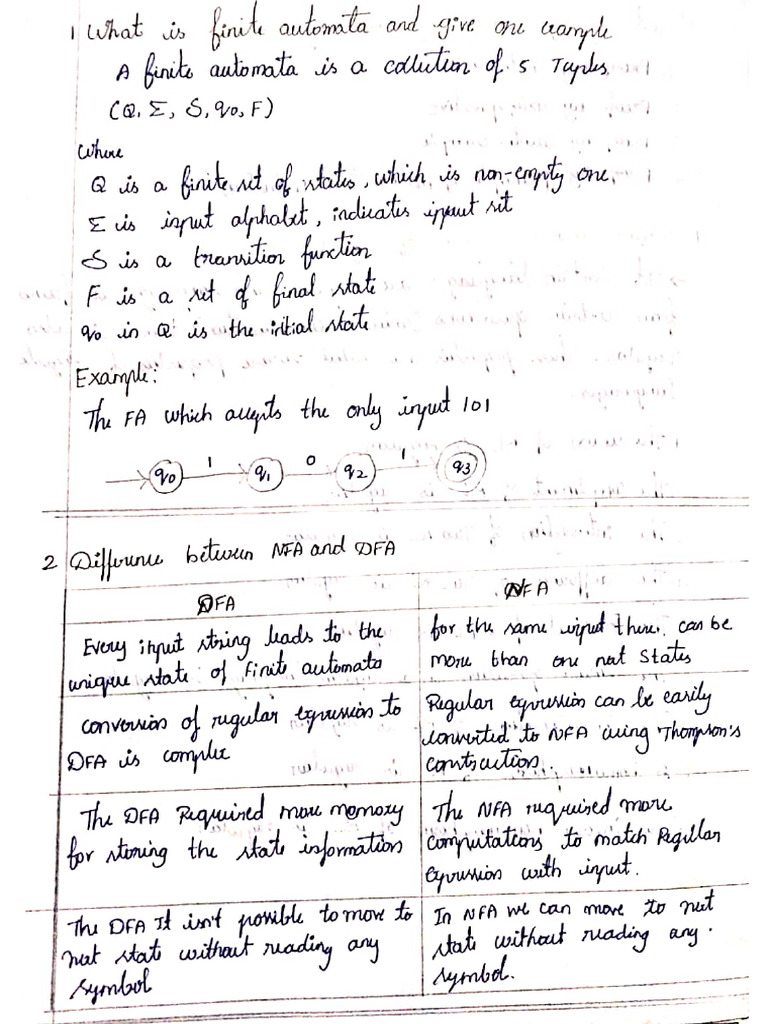 1 What is finite automata and give one example
A finite automata is a collection of 5 Tuples
(Q, Σ, δ, q0, F)
Where
Q is a finite set of states, which is non-empty one.
Σ is input alphabet, indicates input set
δ is a transition function
F is a set of final state
q0 in Q is the initial state
Example:
The FA which accepts the only input 101
1 0 1
q0 q1 q2 q3
2 Difference between NFA and DFA
DFA
NFA
Every input string leads to the
unique state of finite automata
for the same input there can be
more than one next States
conversion of regular expression to
DFA is complex
Regular expression can be easily
converted to NFA using Thompson's
constuction.
The DFA Required more memory
for storing the state information
The NFA required more
computations to match Regular
expression with input.
The DFA It isn't possible to move to
next state without reading any
symbol
In NFA we can move to next
state without reading any
symbol.